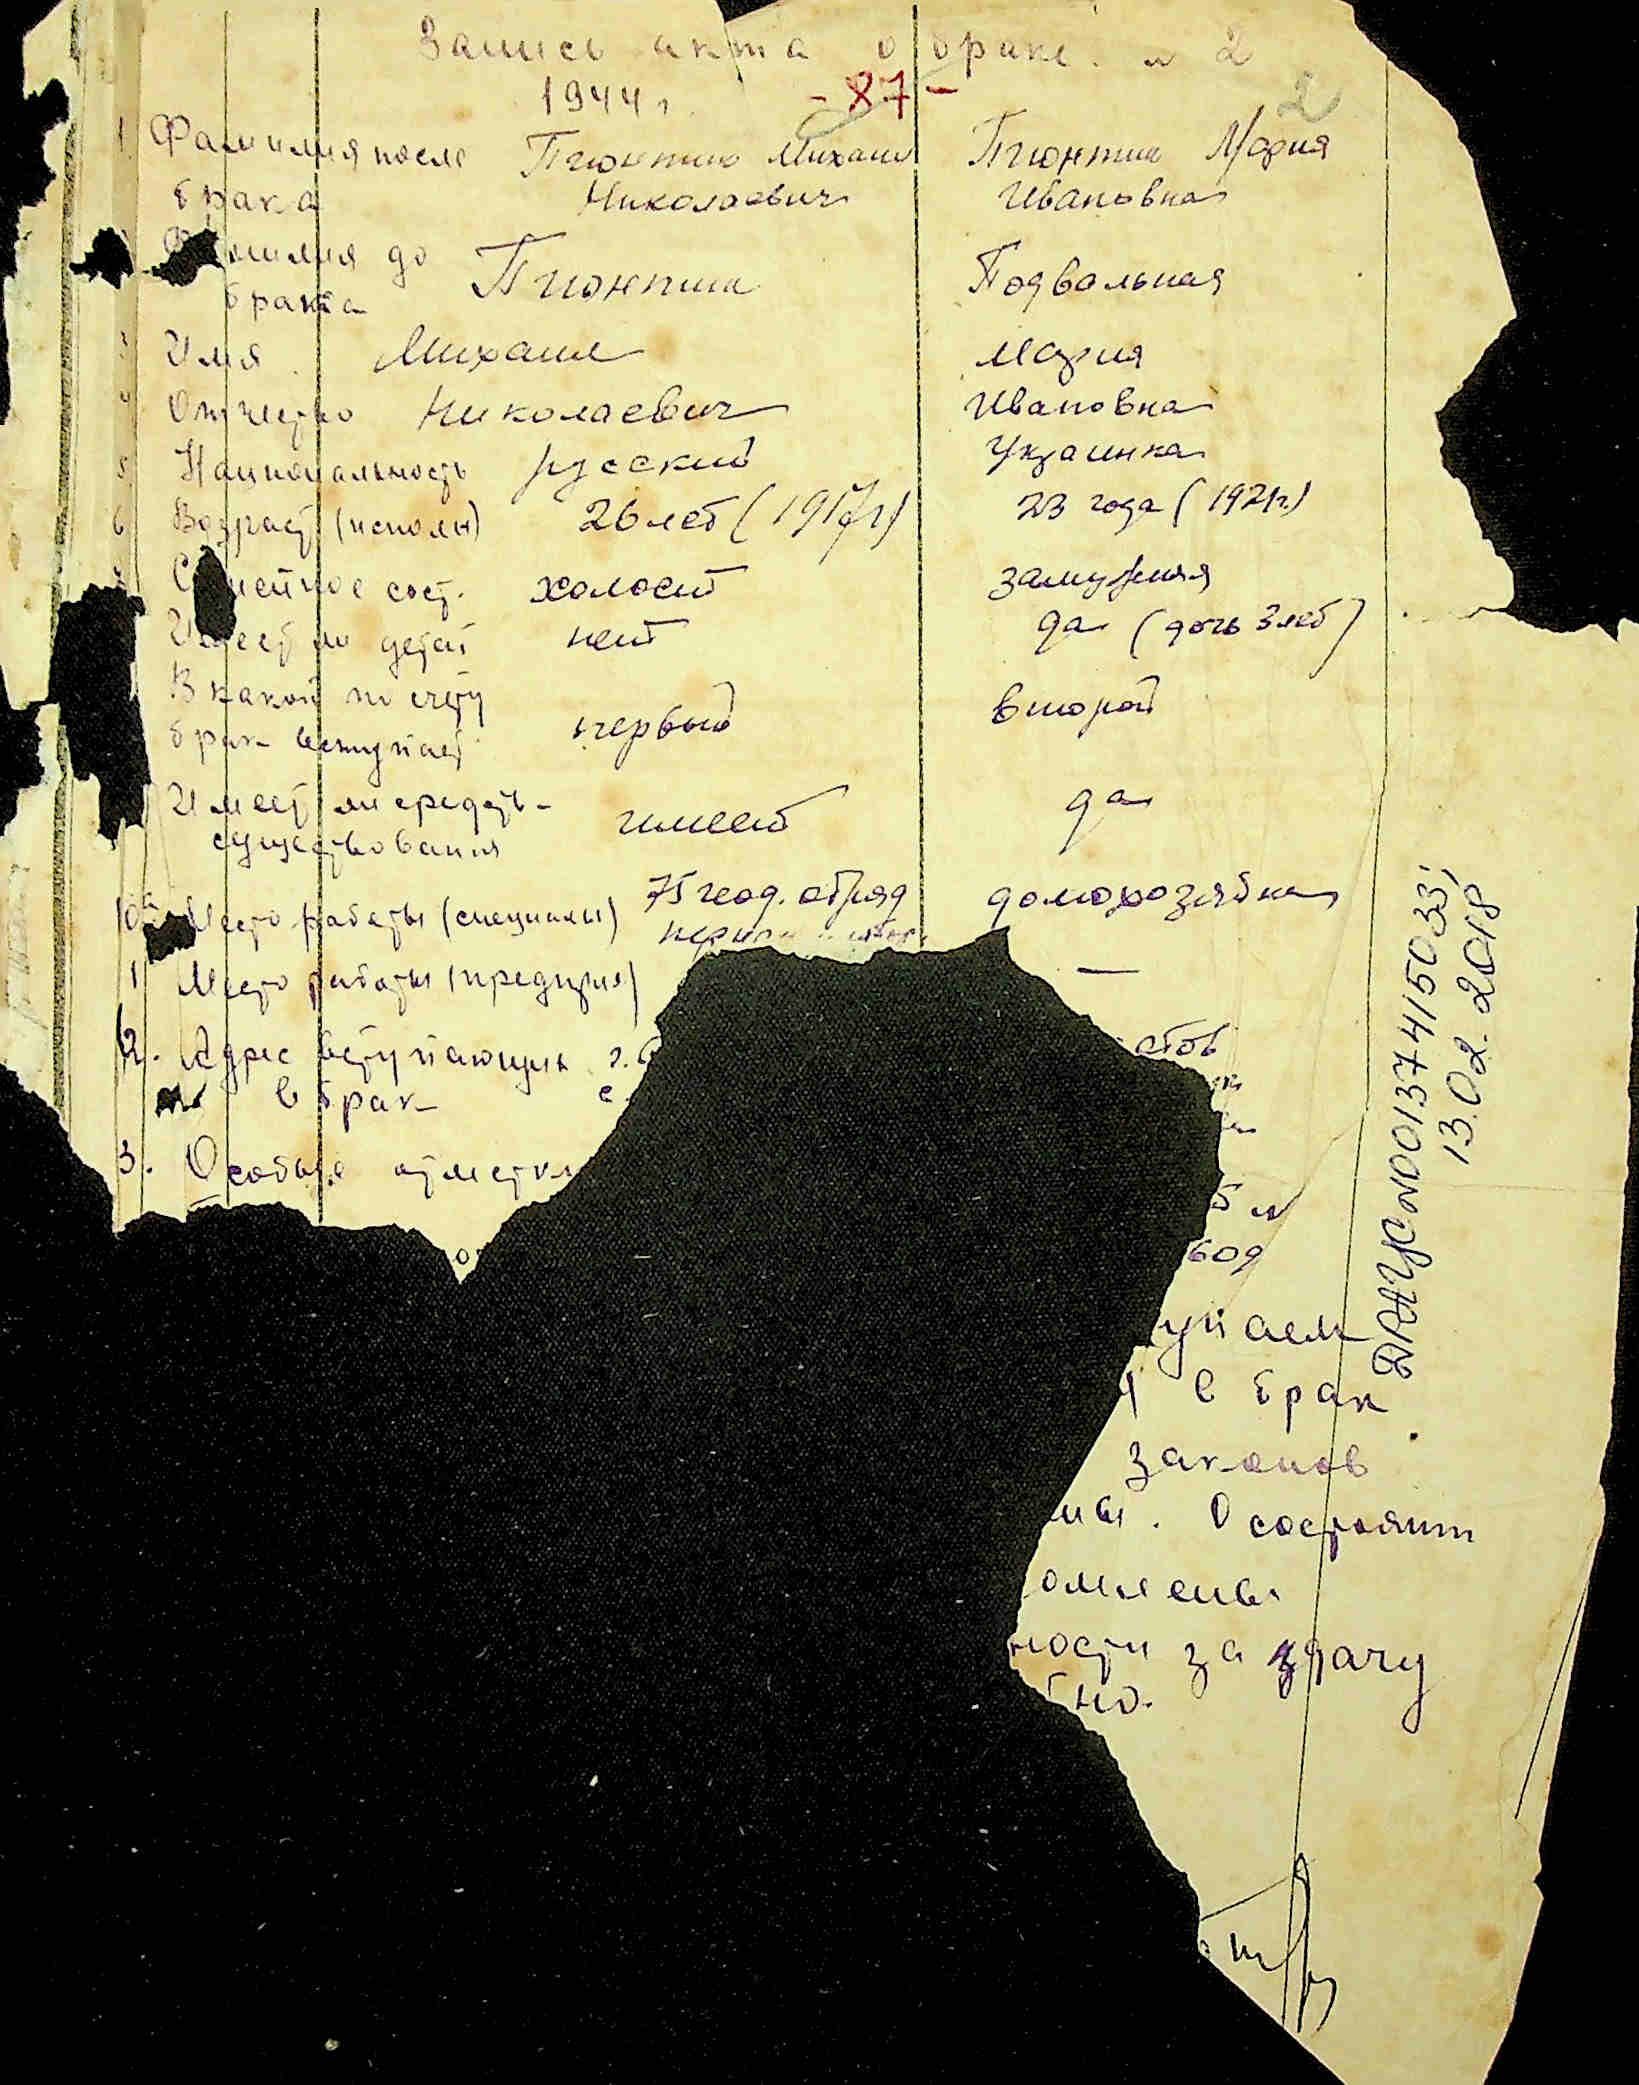 Запись акта о браке. № 2
1944 г. - 87 - 2
1 Фамилия после Михаил Мария
брака Николаевич Ивановна
до Подвальная
брака
3 Имя Михаил Мария
4 Отчество Николаевич Ивановна
5 Национальность русский Украинка
6 Возраст (исполн) 26 лет (1917 г) 23 года (1921 г.)
сост. холост замужняя
детей нет да (дочь 3 лет)
В какой по счету
брак вступает первый второй
Имеет ли средств-
существования имеет да
10 Место работы (специальн) 75 геод. отряд домохозяйка
1 Место работы (предприя) —
2. Адрес вступающих г. стов
в брак с.
3. Особые отметки
5 м
60д
упаем
в брак
законов
ны. О состоянии
омлены
ности за дачу
но.
ДРАЦС №00137415033;
13.02.2018